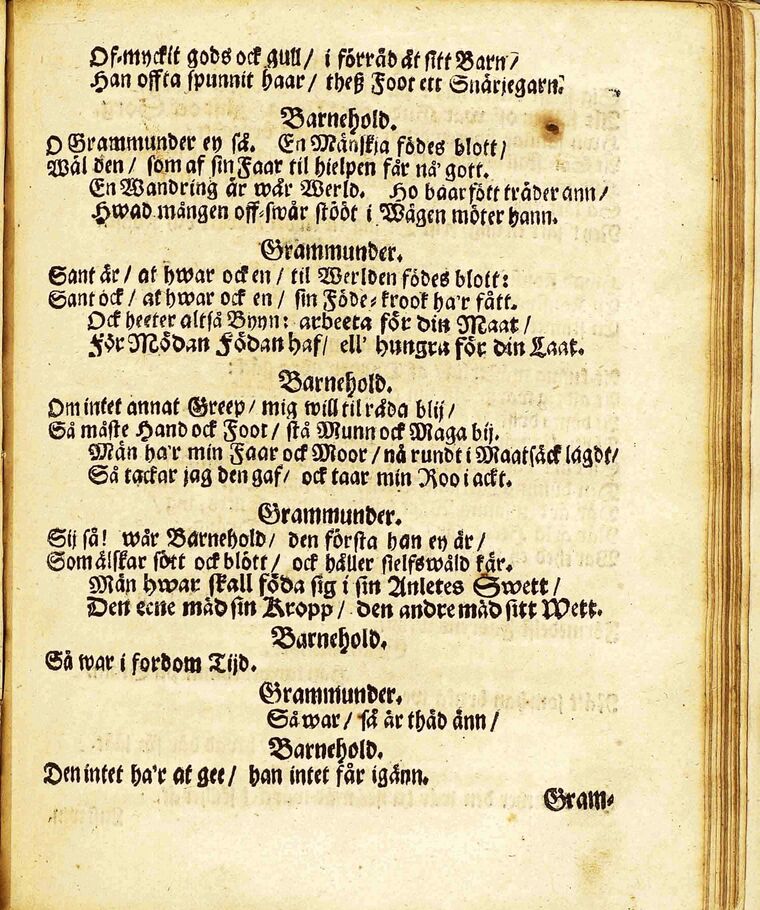 Of-myckit gods ock gull/ i förråd åt sitt Barn/
Han offta spunnit haar/ theß Foot ett Snärjegarn.
Barnehold.
O Grammunder ey så. En Mänskja födes blott/
Wäl den/ som af sin Faar til hielpen får nå' gott.
En Wandring är wår Werld. Ho baarfött träder ann/
Hwad mången off-swår stööt i Wägen möter hann.
Grammunder.
Sant är/ at hwar ock en/ til Werlden födes blott:
Sant ock/ at hwar ock en/ sin Föde-krook ha'r fått.
Ock heeter altså Bynn: arbeeta för din Maat/
För Mödan Födan haf/ ell' hungra för din Laat.
Barnehold.
Om intet annat Greep/ mig will til råda blij/
Så måste Hand ock Foot/ stå Munn ock Maga bij.
Män ha'r min Faar ock Moor/ nå rundt i Maatsäck lagdt/
Så tackar jag den gaf/ ock taar min Roo i ackt.
Grammunder.
Sij så! wår Barnehold/ den första han ey är/
Som älskar sött ock blött/ ock håller sielfswåld kär.
Män hwar skall föda sig i sin Anletes Swett/
Den eene mäd sin Kropp/ den andre mäd sitt Wett.
Barnehold.
Så war i fordom Tijd.
Grammunder.
Så war/ så är thäd änn/
Barnehold.
Den intet ha'r at gee/ han intet får igänn.
Gram-